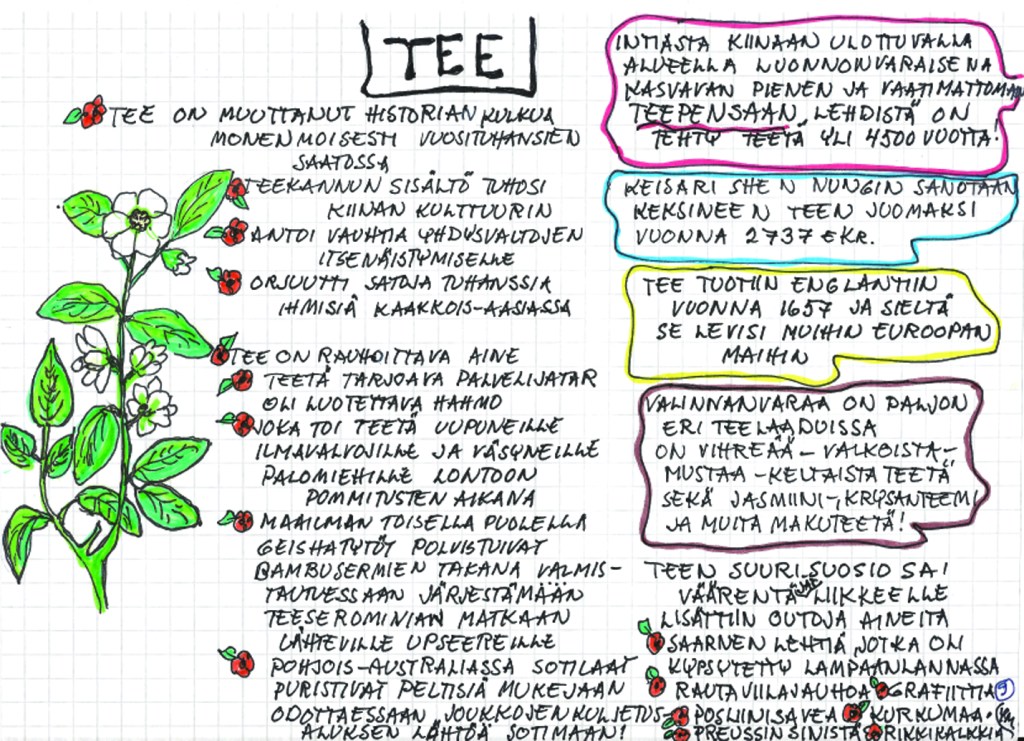 TEE
TEE ON MUUTTANUT HISTORIAN KULKUA
MONENMOISESTI VUOSITUHANSIEN
SAATOSSA
TEEKANNUN SISÄLTÖ TUHOSI
KIINAN KULTTUURIN
ANTOI VAUHTIA YHDYSVALTOJEN
ITSENÄISTYMISELLE
ORJUUTTI SATOJA TUHANSSIA
IHMISIÄ KAAKKOIS-AASIASSA
TEE ON RAUHOITTAVA AINE
TEETÄ TARJOAVA PALVELIJATAR
OLI LUOTETTAVA HAHMO
JOKA TOI TEETÄ UUPUNEILLE
ILMAVALVOJILLE JA VÄSYNEILLE
PALOMIEHILLE LONTOON
POMMITUSTEN AIKANA
MAAILMAN TOISELLA PUOLELLA
GEISHATYTÖT POLVISTUIVAT
BAMBUSERMIEN TAKANA VALMIS-
TAUTUESSAAN JÄRJESTÄMÄÄN
TEESEROMINIAN MATKAAN
LÄHTEVILLE UPSEEREILLE
POHJOIS-AUSTRALIASSA SOTILAAT
PURISTIVAT PELTISIÄ MUKEJAAN
ODOTTAESSAAN JOUKKOJEN KULJETUS-
ALUKSEN LÄHTÖÄ SOTIMAAN!
INTIASTA KIINAAN ULOTTUVALLA
ALUEELLA LUONNONVARAISENA
KASVAVAN PIENEN JA VAATIMATTOMAN
TEEPENSAAN LEHDISTÄ ON
TEHTY TEETÄ YLI 4500 VUOTTA!
KEISARI SHEN NUNGIN SANOTAAN
KEKSINEEN TEEN JUOMAKSI
VUONNA 2737 EKR.
TEE TUOTIIN ENGLANTIIN
VUONNA 1657 JA SIELTÄ
SE LEVISI MUIHIN EUROOPAN
MAIHIN
VALINNANVARAA ON PALJON
ERI TEELAADUISSA
ON VIHREÄÄ-VALKOISTA-
MUSTAA-KELTAISTA TEETÄ
SEKÄ JASMIINI-, KRYSANTEEMI
JA MUITA MAKUTEETÄ!
TEEN SUURI SUOSIO SAI
VÄÄRENTÄJÄT LIIKKEELLE
LISÄTTIIN OUTOJA AINEITA
SAARNEN LEHTIÄ JOTKA OLI
KYPSYTETTY LAMPAANLANNASSA
RAUTAVIILAJAUHOA GRAFIITTIA
POSLIINISAVEA KURKUMAA.
PREUSSIN SINISTÄ RIKKIKALKKIA